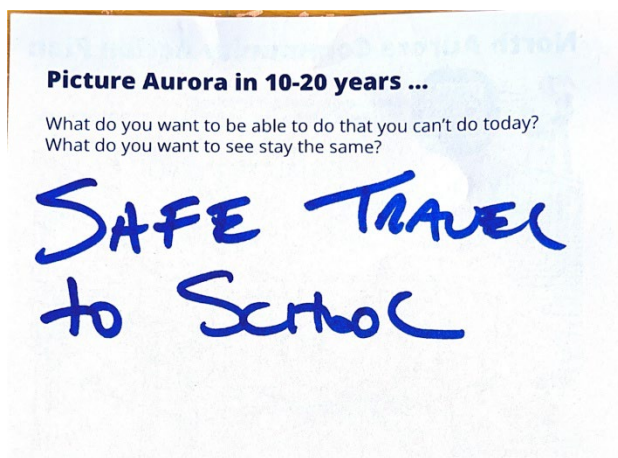 Picture Aurora in 10-20 years ...
What do you want to be able to do that you can't do today?
What do you want to see stay the same?
SAFE TRAVEL
to SCHOOL